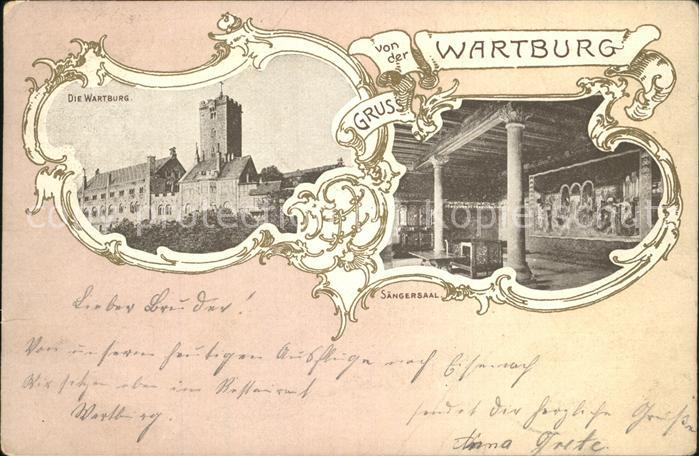 von
der
WARTBURG
GRUSS
DIE WARTBURG.
SÄNGERSAAL
Lieber Bruder!
Von unserm heutigen Ausfluge nach Eisenach
Wir sitzen oben im Restaurant
Wartburg.
sendet Dir herzliche Grüße
Anna Grete.
copyright protected kopierschutz